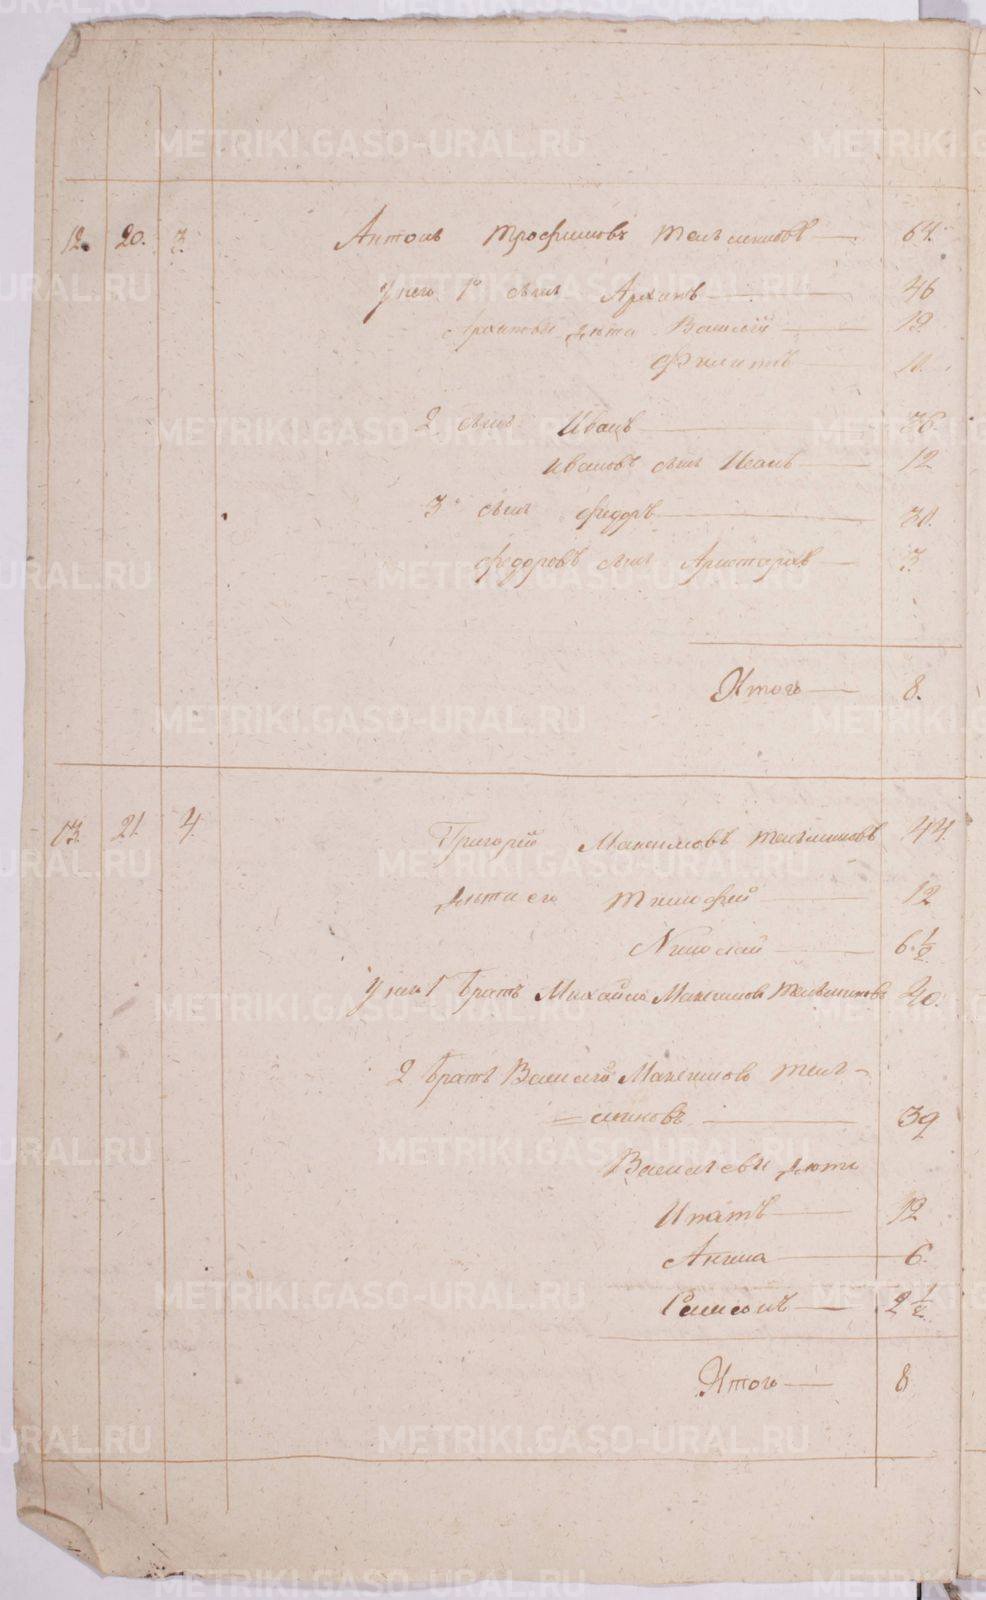 12. 20. 3. Антонъ Трофимовъ Телминовъ — 64.
У него 1й сынъ Архипъ — 46
Архиповы дѣти Василiй — 19
Филиппъ — 11.
2 сынъ Иванъ — 36.
Ивановъ сынъ Исакъ — 12
3й сынъ Федоръ — 31.
Федоровъ сынъ Аристархъ — 3
Итого — 8.
13. 21. 4. Григорiй Максимовъ Тельминовъ 44.
Дѣти его Тимофей — 12
Николай — 6 1/2
У них 1 братъ Михайло Максимовъ Тельминовъ 40.
2 братъ Василей Максимовъ Тель-
=миновъ — 39
Васильевы дѣти
Ипатъ — 12
Акима — 6.
Самсонъ — 2 1/2
Итого — 8
METRIKI.GASO-URAL.RU